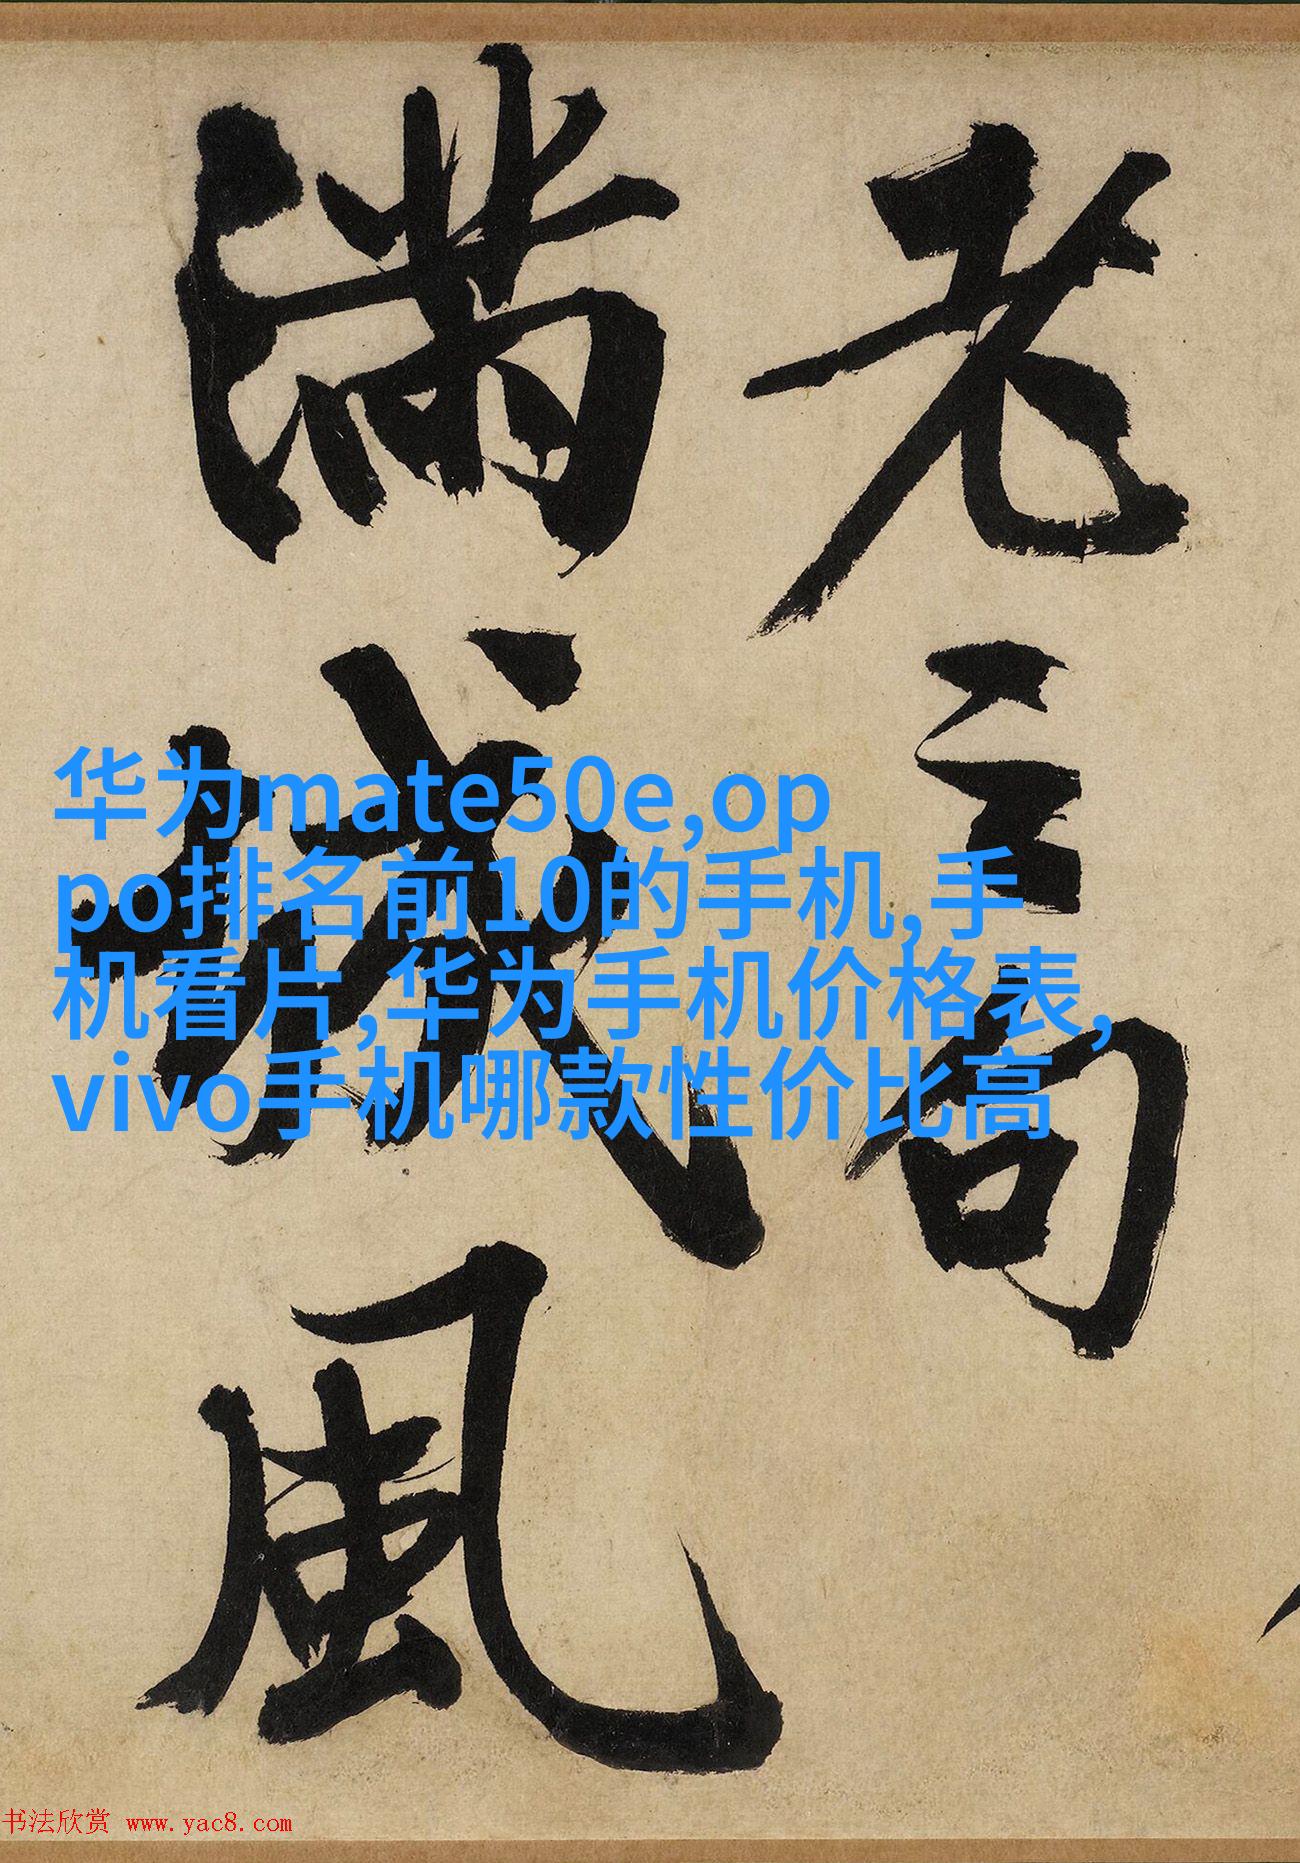 老句
滿城風
华为mate50e,op
po排名前10的手机,手
机看片,华为手机价格表,
vivo手机哪款性价比高
书法欣赏 www.yac8.com